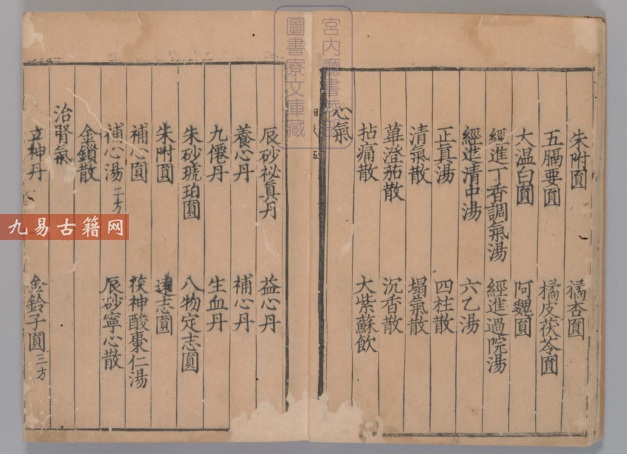 朱附圓 橘杏圓
五膈要圓 橘皮茯苓圓
大温白圓 阿魏圓
經進丁香調氣湯 經進過院湯
經進清中湯 六乙湯
正真湯 四柱散
清氣散 塌氣散
蓽澄茄散 沉香散
拈痛散 大紫蘇飲
心氣
辰砂祕真丹 益心丹
養心丹 補心丹
九僊丹 生血丹
朱砂琥珀圓 八物定志圓
朱附圓 遠志圓
補心圓 茯神酸棗仁湯
補心湯二方 辰砂寧心散
金鎖散
治腎氣
立神丹 金鈴子圓三方
宮内廳書
圖書寮文庫藏
九易古籍网